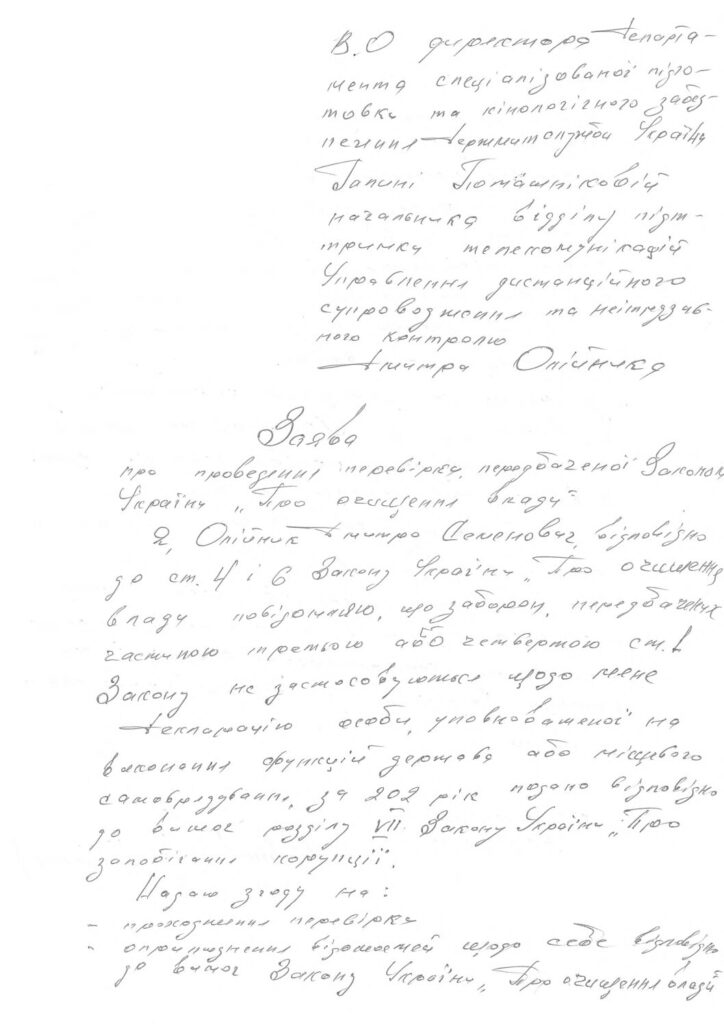 В.О директора Департа-
мента спеціалізованої підго-
товки та кінологічного забез-
печення Держмитслужби України
Галині Тюмашніковій
начальника відділу підт-
тримки телекомунікацій
Управління дистанційного
супроводження та неінтрузив-
ного контролю
Дмитра Олійника
Заява
про проведення перевірки, передбаченої Законом
України „Про очищення влади"
Я, Олійник Дмитро Семенович, відповідно
до ст. 4 і 6 Закону України „Про очищення
влади повідомляю, що заборон, передбачених
частиною третьою або четвертою ст. 1
Закону не застосовуються щодо мене
Декларацію особи, уповноваженої на
виконання функцій держави або місцевого
самоврядування, за 202 рік подано відповідно
до вимог розділу VII Закону України „Про
запобігання корупції".
Надаю згоду на:
- проходження перевірки
- оприлюднення відомостей щодо себе відповідно
до вимог Закону України „Про очищення влади"